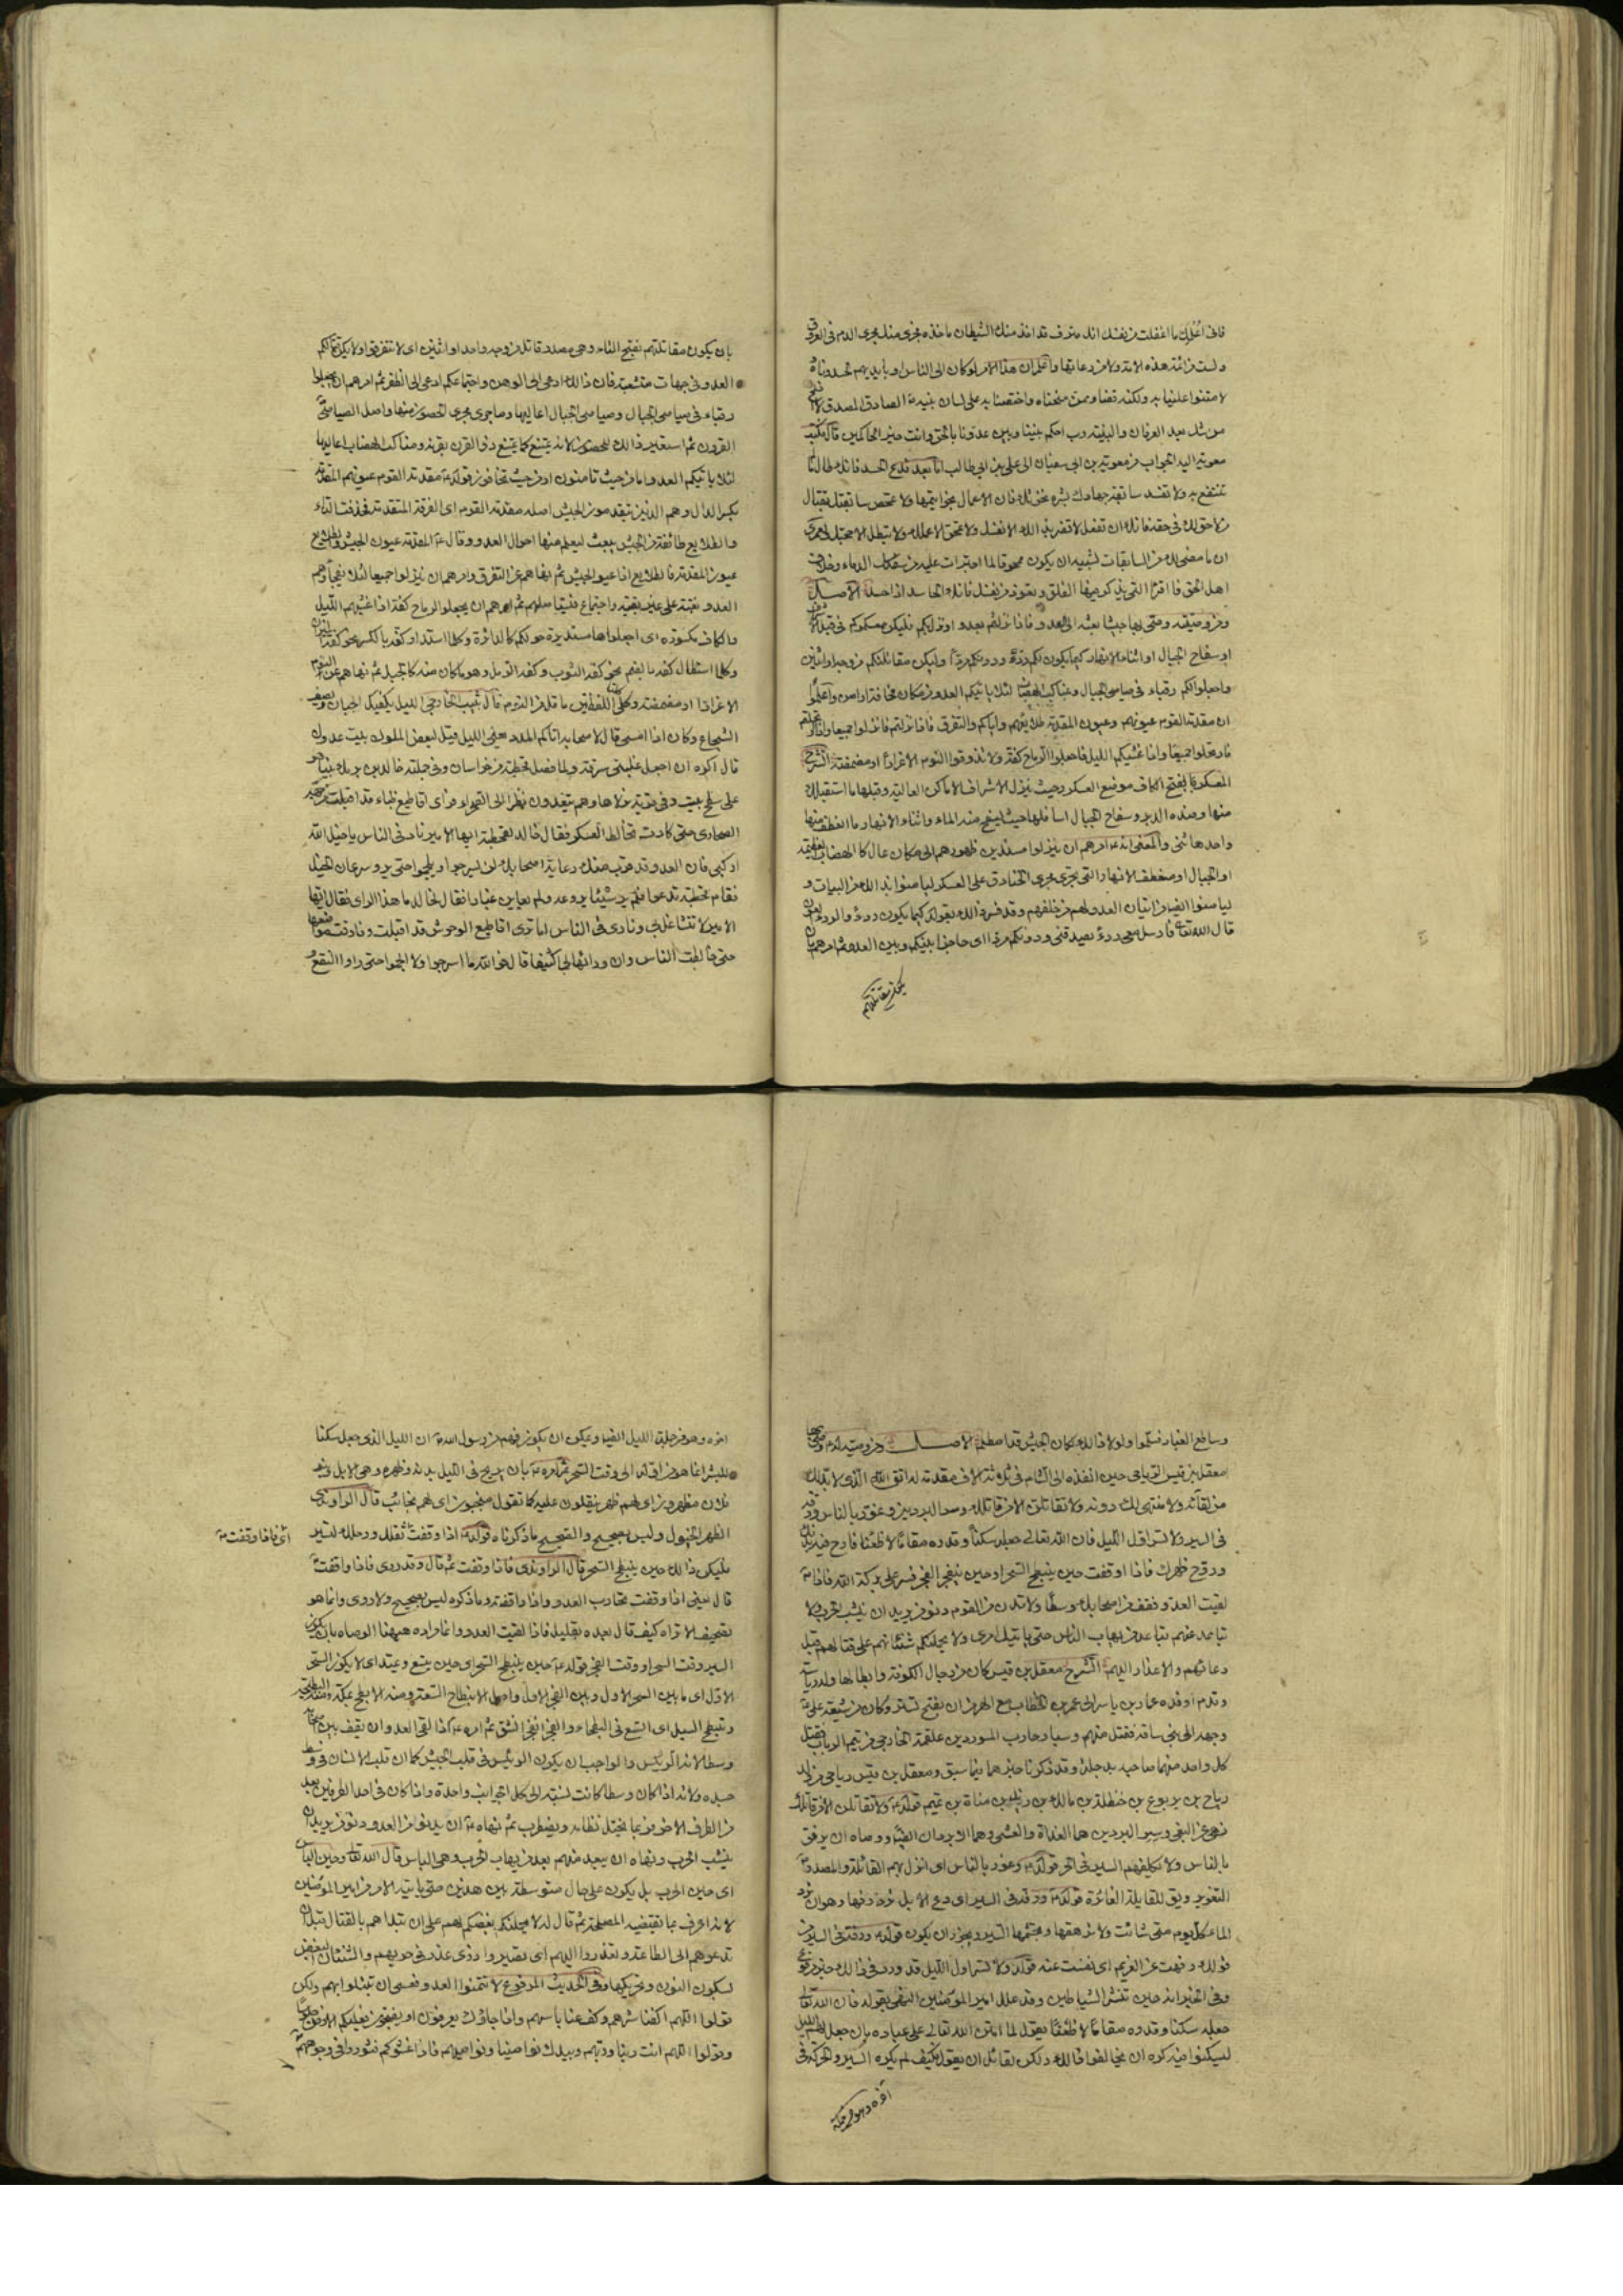 فانى اعلمك ما اغفلت من نفسك انك مترف قد اخذ منك الشيطان ماخذه وجرى منك مجرى الدم فى العروق
ولست من ائمة هذه الامة ولا من رعاتها واعلم ان هذا الامر لو كان الى الناس او بايديهم لحسدوناه
لامتنوا علينا به ولكنه قضاء ممن منحناه واختصنا به على لسان نبيه الصادق المصدق لا افلح
من شك بعد العرفان والبينة رب احكم بيننا وبين عدونا بالحق وانت خير الحاكمين فكتب
معوية اليه الجواب من معوية بن ابى سفيان الى على بن ابى طالب اما بعد فدع الحسد فانك طالما لم
تنتفع به ولا تفسد سابقة جهادك بشره نخوتك فان الاعمال بخواتيمها ولا تمحص سابقتك بقتال
من لا حق لك فى حقه فانك ان تفعل لا تضر بذلك الا نفسك ولا تمحق الا عملك ولا تبطل الا حجتك ولعمرى
ان ما مضى لك من السابقات لشبيه ان يكون ممحوقا لما اجترات عليه من سفك الدماء وخلاف
اهل الحق فاقرا التى يذكر فيها الفلق وتعوذ من نفسك فانك الحاسد اذا حسد الاصل
ومن وصيته وصى بها جيشا بعثه الى العدو فاذا نزلتم بعدو او نزل بكم فليكن معسكركم فى قبل الاشراف
او سفاح الجبال او اثناء الانهار كيما يكون لكم ردءا ودونكم مردا ولتكن مقاتلتكم من وجه او اثنين
واجعلوا لكم رقباء فى صياصى الجبال ومناكب الهضاب لئلا ياتيكم العدو من مكان مخافة او امن واعلموا
ان مقدمة القوم عيونهم وعيون المقدمة طلائعهم واياكم والتفرق فاذا نزلتم فانزلوا جميعا واذا ارتحلتم
فارتحلوا جميعا واذا غشيكم الليل فاجعلوا الرماح كفة ولا تذوقوا النوم الا غرارا او مضمضة الشرح
المعسكر بفتح الكاف موضع العسكر وحيث ينزل الاشراف الاماكن العالية وقبلها ما استقبلك
منها وضده الدبر وسفاح الجبال اسافلها حيث يسفح منه الماء واثناء الانهار ما انعطف منها
واحدها ثنى والمعنى انه امرهم ان ينزلوا مسندين ظهورهم الى مكان عال كالهضاب العظيمة
او الجبال او منعطف الانهار التى تجرى مجرى الخنادق على العسكر ليامنوا بذلك من البيات و
ليامنوا ايضا من اتيان العدو لهم من خلفهم وقد فسر ذلك بقوله كيما يكون ردءا والردء العون
قال الله تعالى فارسله معى ردءا يصدقنى ودونكم مردا اى حاجزا بينكم وبين العدو ثم امرهم بان
يكون مقاتلتهم
بان يكون مقاتلتهم بفتح التاء وهى مصدر قاتل من وجه واحد او اثنين اى لا تتفرقوا ولا يكن قتالكم
العدو فى جهات متشعبة فان ذلك ادعى الى الوهن واجتماعكم ادعى الى الظفر ثم امرهم ان يجعلوا
رقباء فى صياصى الجبال وصياصى الجبال اعاليها وما جرى مجرى الحصون منها واصل الصياصى
القرون ثم استعير ذلك للحصون لانه يمتنع بها كما يمتنع ذو القرن بقرنه ومناكب الهضاب اعاليها
لئلا ياتيكم العدو اما من حيث تامنون او من حيث تخافون قوله مقدمة القوم عيونهم المقدمة
بكسر الدال وهم الذين يتقدمون الجيش اصله مقدمة القوم اى الفرقة المتقدمة فحذفت التاء
والطلايع طائفة من الجيش تبعث ليعلم منها احوال العدو وقال المقدمة عيون الجيش والطلايع
عيون المقدمة فالطلايع اذا عيون الجيش ثم نهاهم عن التفرق وامرهم ان ينزلوا جميعا لئلا يفجاهم
العدو بغتة على غير تعبية واجتماع ثم امرهم ان يجعلوا الرماح كفة اذا غشيهم الليل
والكاف مكسورة اى اجعلوها مستديرة حولكم كالدائرة وكلما استدار كفة بالكسر نحو كفة الميزان
وكلما استطال كفة بالضم نحو كفة الثوب وكفة الرمل وهو ما كان منه كالحبل ثم نهاهم عن النوم
الا غرارا او مضمضة وكلا اللفظين ما قل من النوم قال شبيب الخارجى الليل يكفيك الجبان ويصف
الشجاع وكان اذا امسى قال لاصحابه اتاكم المدد يعنى الليل قيل لبعض الملوك بيت عدوك
قال اكره ان اجعل غلبتى سرقة ولما فصل قحطبة من خراسان وفى جملته خالد بن برمك بينا هو
على سطح بيت فى قرية نزلاها وهم يتغدون نظر الى الصحراء فراى اقاطيع ظباء قد اقبلت من جهة
الصحارى حتى كادت تخالط العسكر فقال خالد لقحطبة ايها الامير ناد فى الناس يا خيل الله
اركبى فان العدو قد قرب منك وعامة اصحابك لن يسرجوا او يلجموا حتى يروا سرعان الخيل
فقام قحطبة مذعورا فلم ير شيئا يروعه ولم يعاين غبارا فقال لخالد ما هذا الراى فقال ايها
الامير لا تتشاغل بى وناد فى الناس اما ترى اقاطيع الوحوش قد اقبلت وفارقت مواضعها
حتى خالطت الناس وان وراءها لجمعا كثيفا قال فوالله ما اسرجوا ولا الجموا حتى راوا النقع
وساطع الغبار فسلموا ولولا ذلك لكان الجيش قد اصطلم الاصل ومن وصية له وصى بها
معقل بن قيس الرياحى حين انفذه الى الشام فى ثلثة الاف مقدمة له اتق الله الذى لا بد لك
من لقائه ولا منتهى لك دونه ولا تقاتلن الا من قاتلك وسر البردين وغور بالناس ورفه
فى السير ولا تسر اول الليل فان الله تعالى جعله سكنا وقدره مقاما لا ظعنا فارح فيه بدنك
وروح ظهرك فاذا وقفت حين ينبطح السحر او حين ينفجر الفجر فسر على بركة الله فاذا
لقيت العدو فقف من اصحابك وسطا ولا تدن من القوم دنو من يريد ان ينشب الحرب ولا
تباعد عنهم تباعد من يهاب الباس حتى ياتيك امرى ولا يحملنكم شنانهم على قتالهم قبل
دعائهم والاعذار اليهم الشرح معقل بن قيس كان من رجال الكوفة وابطالها وله رياسة
وقدم اوفده عمار بن ياسر الى عمر بن الخطاب مع الهرمزان بفتح تستر وكان من شيعة على
وجهه الى بنى ساقة فقتل منهم وسبا وحارب المستورد بن علقمة الخارجى من تيم الرباب فقتل
كل واحد منهما صاحبه بدجلة وقد ذكرنا خبرهما فيما سبق ومعقل بن قيس رياحى من ولد
رياح بن يربوع بن حنظلة بن مالك بن زيد بن مناة بن تميم قوله ولا تقاتلن الا من قاتلك
نهى عن البغى وسر البردين هما الغداة والعشى وهما الابردان ايضا ووصاه ان يرفق
بالناس ولا يكلفهم السير فى الحر قوله وغور بالناس اى انزل بهم القائلة والمصدر
التغوير ويق للقايلة الغائرة قوله ورفه فى السير اى دع الابل ترد رفها وهو ان ترد
الماء كل يوم متى شاءت ولا ترهقها وتجشمها السير ويجوز ان يكون قوله ورفه فى السير من
قولك رفهت عن الغريم اى نفست عنه قوله ولا تسر اول الليل قد ورد فى ذلك خبر مرفوع
وفى الخبر انه حين تنشر الشياطين وقد علل امير المؤمنين النهى بقوله فان الله تعالى
جعله سكنا وقدره مقاما لا ظعنا يقول لما امتن الله تعالى على عباده بان جعل لهم الليل
ليسكنوا فيه كره ان يخالفوا ذلك ولكن لقائل ان يقول فكيف لم يكره السير والحركة فى
اخره وهو من جملة
اخره وهو من جملة الليل ايضا ويمكن ان يكون فهم من رسول الله ان الليل الذى جعل سكنا
للبشر انما هو من اوله الى وقت السحر ثم امره بان يريح فى الليل بدنه وظهره وهى الابل وبنو
فلان مظهرون اى لهم ظهر ينقلون عليه كما تقول منجبون اى لهم نجائب قال الراوندى
الظهر الخيول وليس بصحيح والصحيح ما ذكرناه قوله اذا وقفت ثقلك ورحلك لتسير
اى فاذا وقفت
فليكن ذلك حين ينبطح السحر قال الراوندى فاذا وقفت ثم قال وقد روى فاذا واقفت
قال يعنى اذا وقفت تحارب العدو واذا واقفته وما ذكره ليس بصحيح ولا روى وانما هو
تصحيف الا تراه كيف قال بعده بقليل فاذا لقيت العدو وانما مراده ههنا الوصاة بان يكون
السير وقت السحر او وقت الفجر قوله حين ينبطح السحر اى حين يتسع ويمتد اى لا يكون السحر
الاول اى ما بين السحر الاول وبين الفجر الاول واصل الانبطاح السعة ومنه الابطح بمكة ومنه البطيحة
وتبطح السيل اى اتسع فى البطحاء والفجر انفجر انشق ثم امره اذا لقى العدو ان يقف بين اصحابه
وسطا لانه الرئيس والواجب ان يكون الرئيس فى قلب الجيش كما ان قلب الانسان فى وسط
جسده ولانه اذا كان وسطا كانت نسبته الى كل الجوانب واحدة واذا كان فى احد الطرفين بعد
من الطرف الاخر فربما يختل نظامه ويضطرب ثم نهاه ان يدنو من العدو دنو من يريد ان
ينشب الحرب ونهاه ان يبعد منهم بعد من يهاب الحرب وهى الباس قال الله تعالى وحين الباس
اى حين الحرب بل يكون على حال متوسطة بين هذين حتى ياتيه الامر من امير المؤمنين
لانه اعرف بما تقتضيه المصلحة ثم قال له لا يحملنكم بغضكم لهم على ان تبداوهم بالقتال قبل ان
تدعوهم الى الطاعة وتعذروا اليهم اى تصيروا ذوى عذر فى حربهم والشنان البغض
بسكون النون وتحريكها وفى الحديث المرفوع لا تتمنوا العدو فعسى ان تبتلوا بهم ولكن
قولوا اللهم اكفنا شرهم وكف عنا باسهم واذا جاؤك يعرفون او يضجون فعليكم الارض جلوسا
وقولوا اللهم انت ربنا وربهم وبيدك نواصينا ونواصيهم فاذا غشوكم فثوروا فى وجوههم